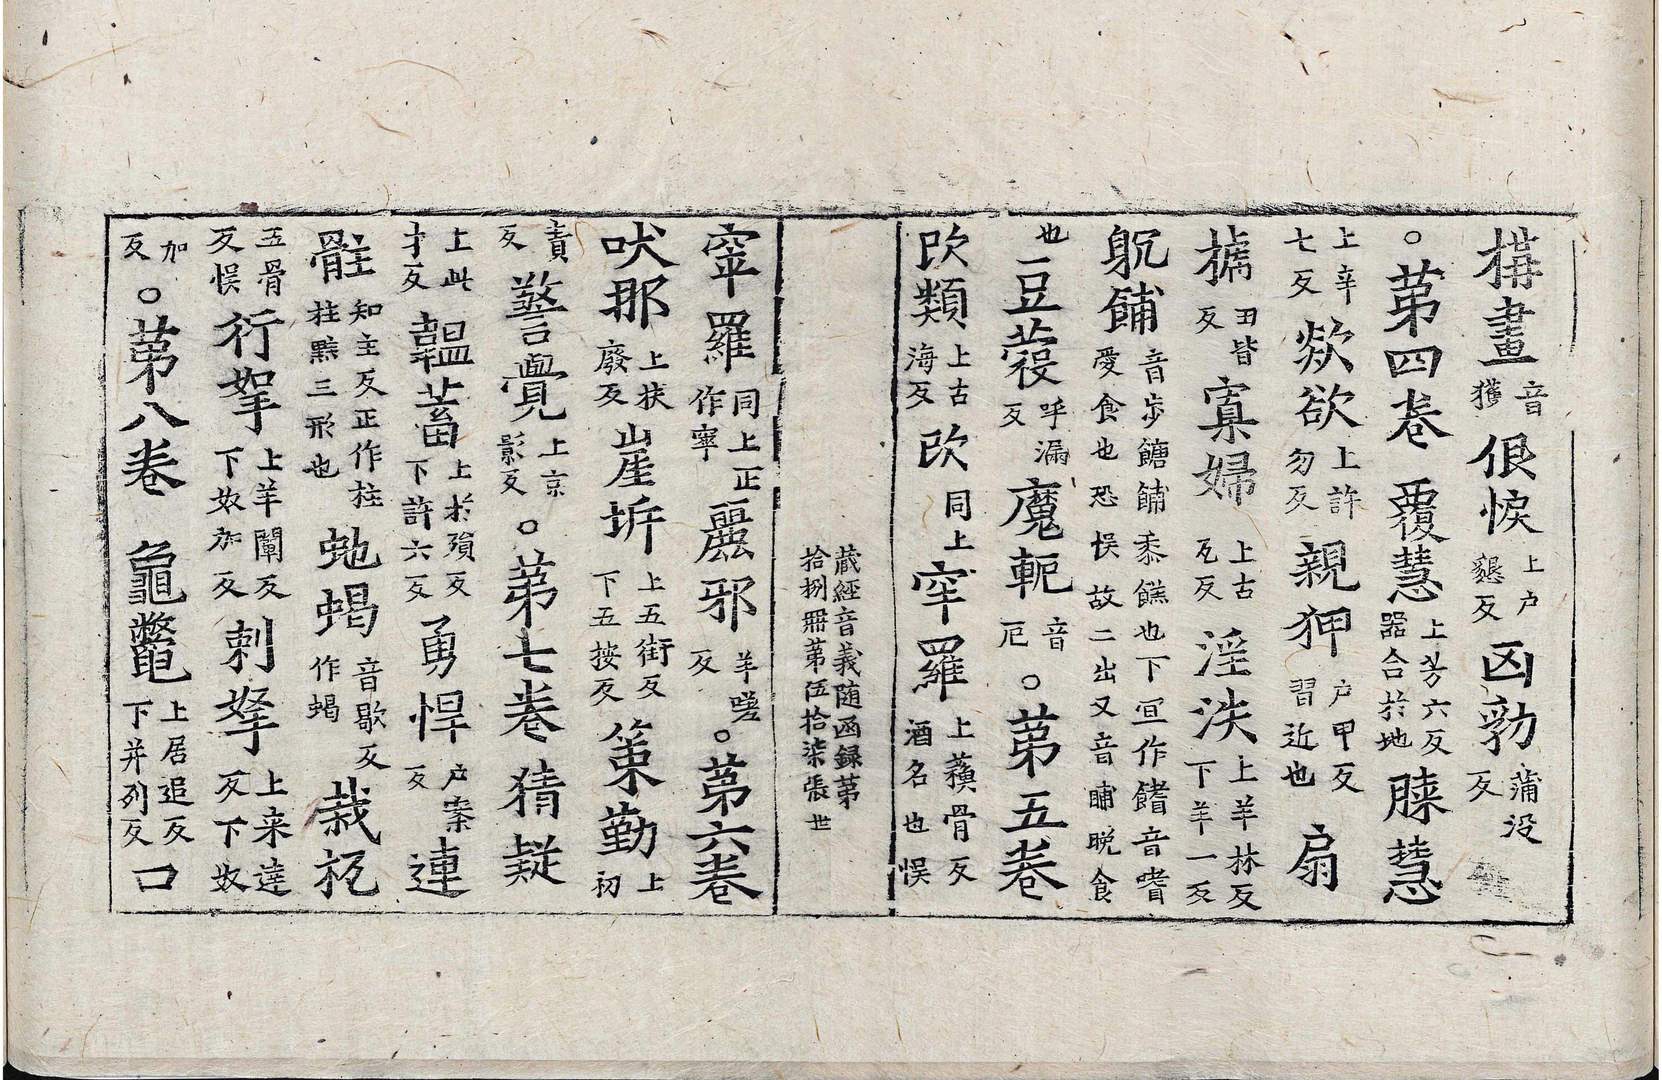 搆畫音獲佷悷上户懇反㐫勃蒲没反
○苐四卷覆慧上芳六反器合於地䐑慧
上辛七反欻欲上許勿反親狎户甲反習近也扇
搋田皆反寡婦上古瓦反淫泆上羊林反下羊一反
躭餔音步餹餔黍饚也下冝作饍音嗜愛食也恐悮故二出又音晡晚食
也豆蔲呼漏反魔軛音厄○苐五卷
㰦類上古海反㰦同上窂羅上蘓骨反酒名也悮
藏經音義随函録第
拾捌冊苐伍拾柒張 世
窣羅同上正作窣麗邪羊嗟反○苐六卷
吠那上扶廢反崖圻上五街反下五按反策勤上初
責反警覺上京影反○苐七卷猜疑
上此才反韞蓄上扵殞反下許六反勇悍户案反連
䯒知主反正作柱拄黙三形也虵蝎音歇反作蝎栽杌
五骨反悮行拏上羊闡反下奴加反剌拏上来達反下奴
加反○苐八卷龜鼈上居追反下并列反口